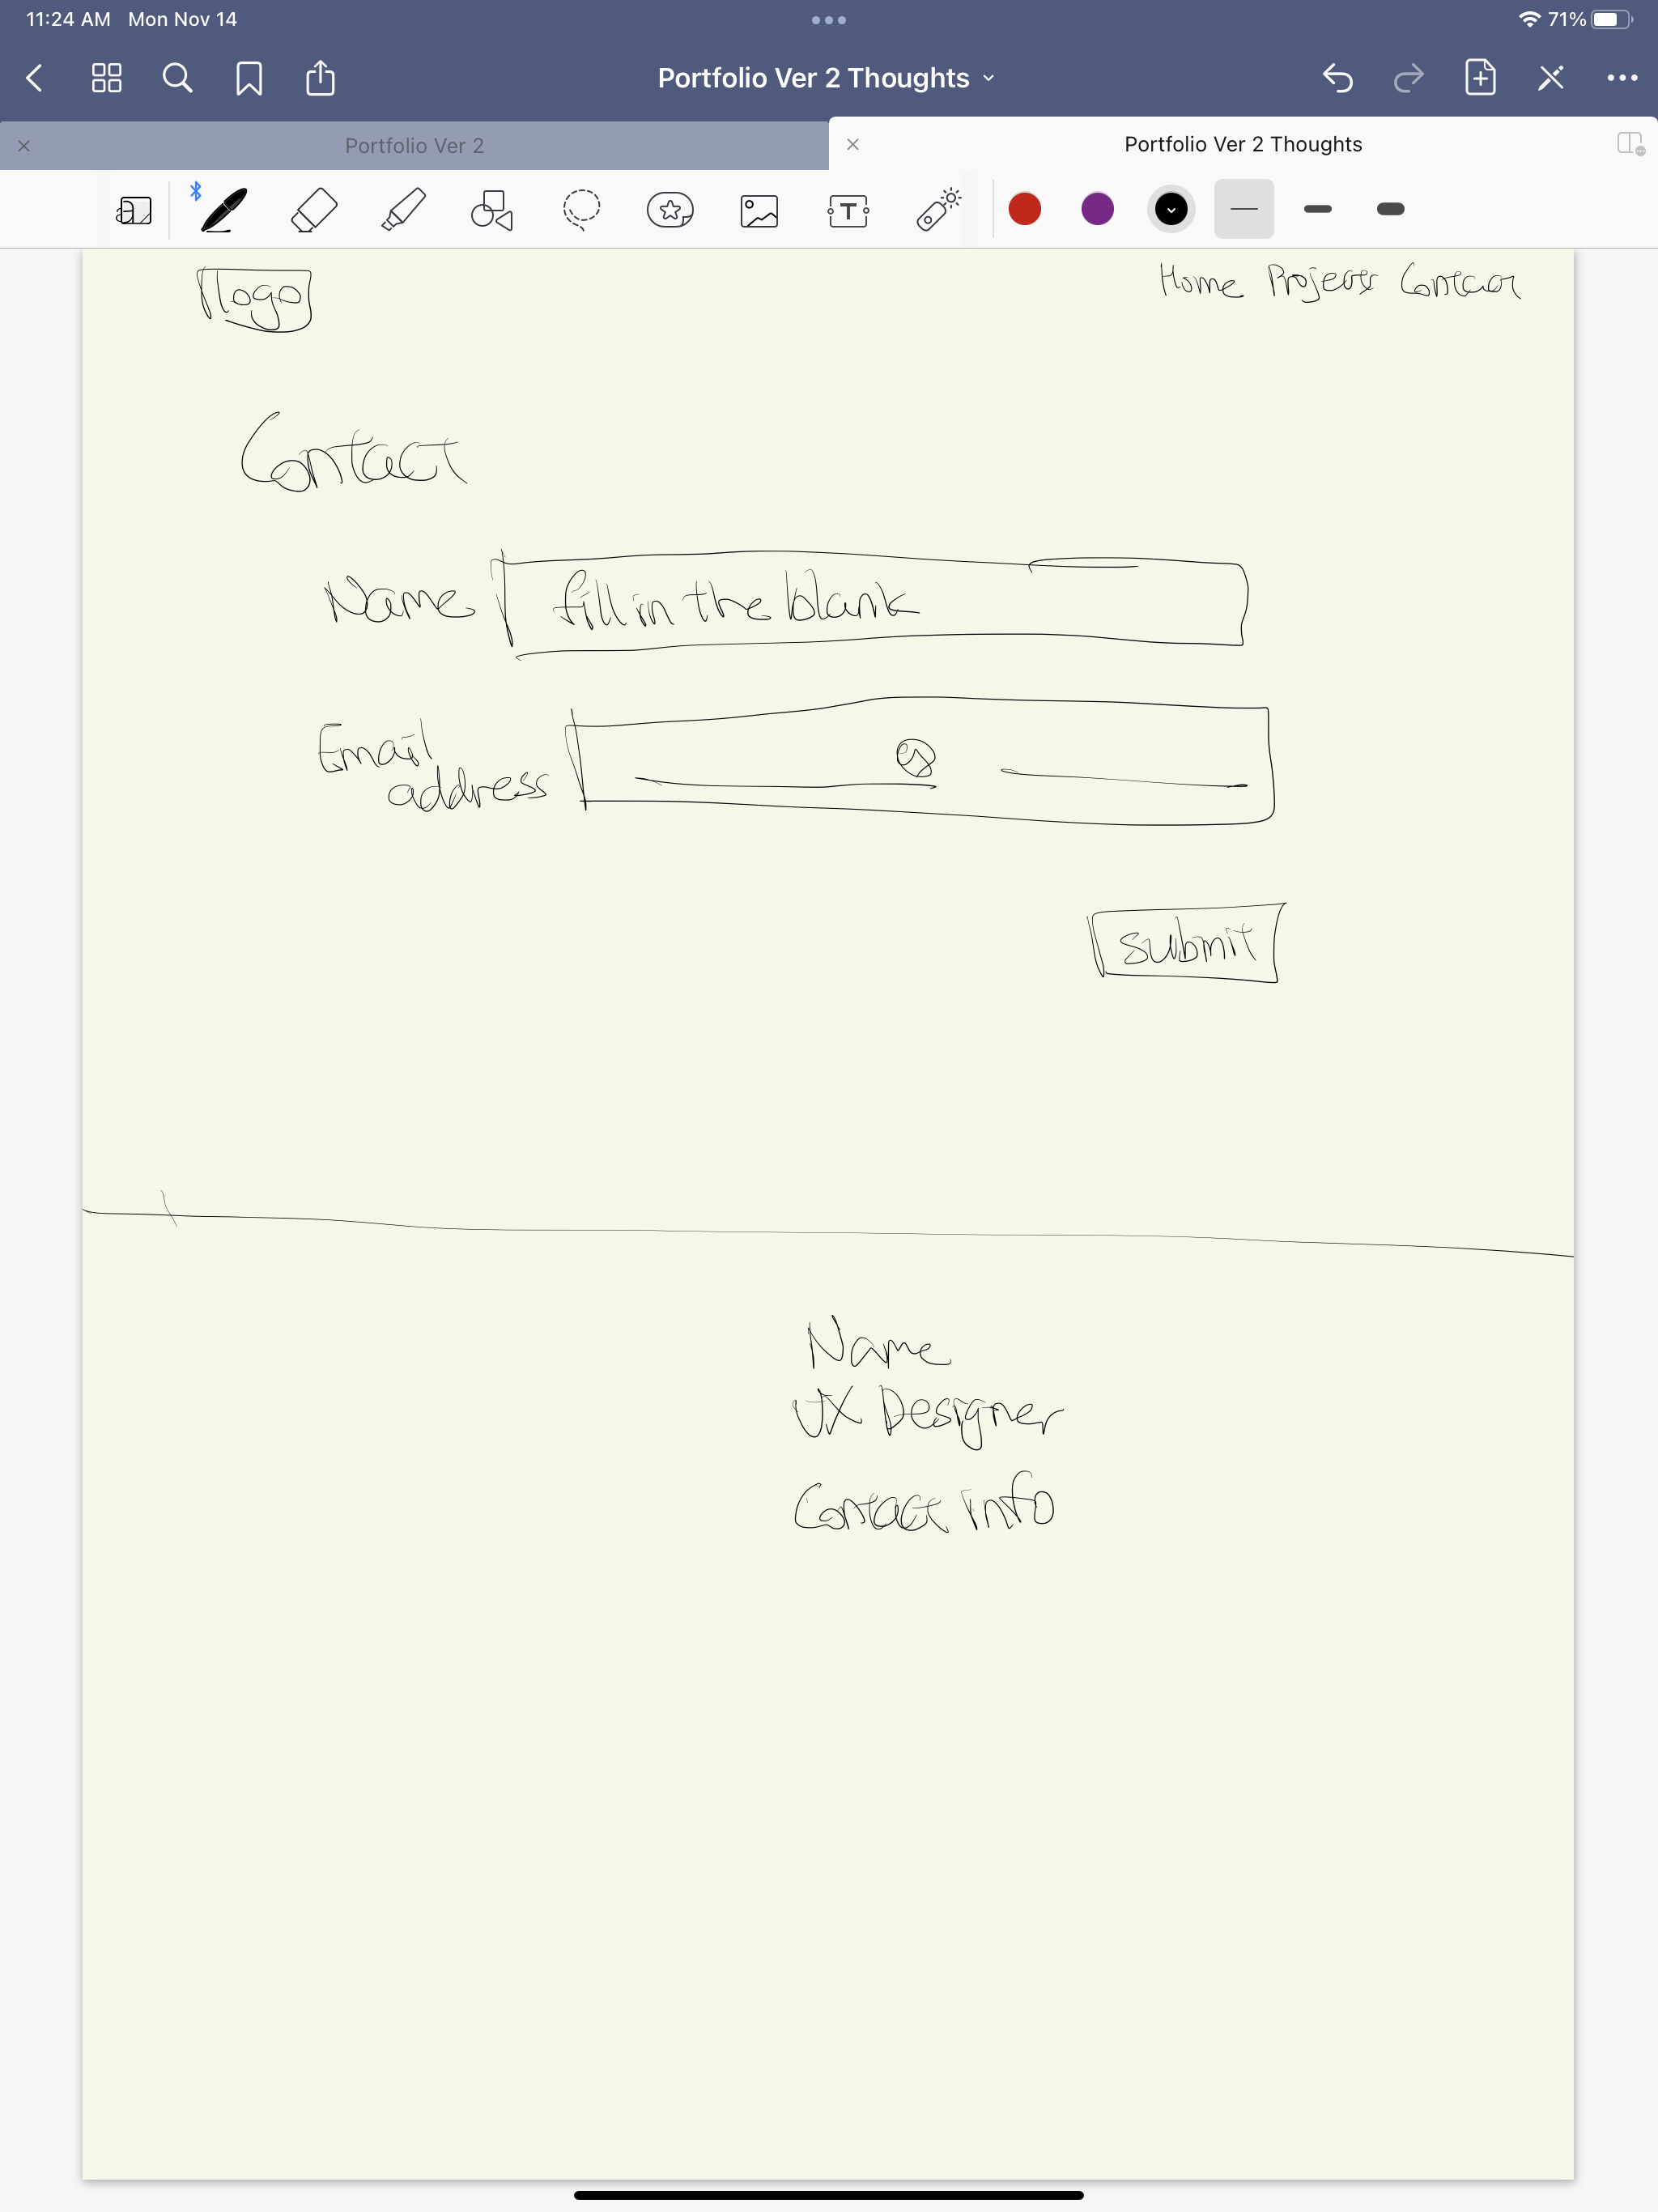 11:24 AM Mon Nov 14
71%
Portfolio Ver 2 Thoughts
Portfolio Ver 2
Portfolio Ver 2 Thoughts
T
logo
Home Projects Contact
Contact
Name fill in the blank
Email
address
@
submit
Name
UX Designer
Contact info